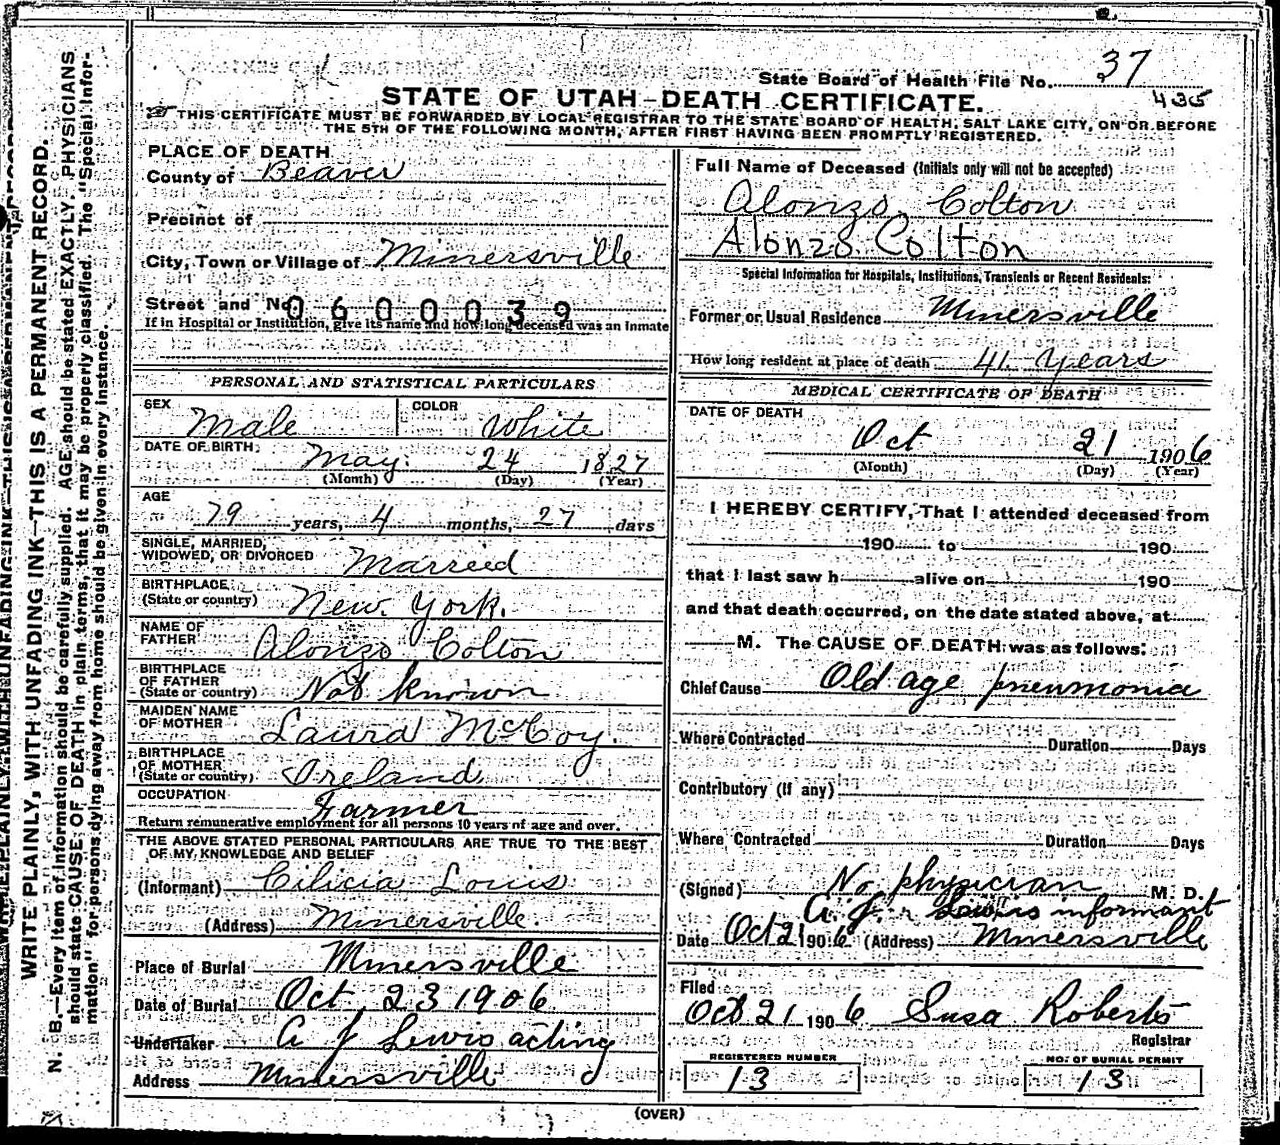 State Board of Health File No. 37
435
STATE OF UTAH—DEATH CERTIFICATE.
THIS CERTIFICATE MUST BE FORWARDED BY LOCAL REGISTRAR TO THE STATE BOARD OF HEALTH, SALT LAKE CITY, ON OR BEFORE
THE 5TH OF THE FOLLOWING MONTH, AFTER FIRST HAVING BEEN PROMPTLY REGISTERED.
WRITE PLAINLY, WITH UNFADING INK—THIS IS A PERMANENT RECORD.
N. B.—Every item of information should be carefully supplied. AGE should be stated EXACTLY. PHYSICIANS
should state CAUSE OF DEATH in plain terms, that it may be properly classified. The "Special Infor-
mation" for persons dying away from home should be given in every instance.
PLACE OF DEATH
County of Beaver
Precinct of
City, Town or Village of Minersville
Street and No. 0600039
If in Hospital or Institution, give its name and how long deceased was an Inmate
PERSONAL AND STATISTICAL PARTICULARS
SEX Male COLOR White
DATE OF BIRTH May 24 1827
(Month) (Day) (Year)
AGE
79 years, 4 months, 27 days
SINGLE, MARRIED,
WIDOWED, OR DIVORCED Marreid
BIRTHPLACE
(State or country) New York.
NAME OF
FATHER Alonzo Colton
BIRTHPLACE
OF FATHER
(State or country) Not known
MAIDEN NAME
OF MOTHER Laura McCoy.
BIRTHPLACE
OF MOTHER
(State or country) Ireland
OCCUPATION
Farmer
Return remunerative employment for all persons 10 years of age and over.
THE ABOVE STATED PERSONAL PARTICULARS ARE TRUE TO THE BEST
OF MY KNOWLEDGE AND BELIEF
(Informant) Cilicia Louis
(Address) Minersville
Place of Burial Minersville
Date of Burial Oct 23 1906
Undertaker A J Lewis acting
Address Minersville
Full Name of Deceased (Initials only will not be accepted)
Alonzo Colton
Alonzo Colton
Special Information for Hospitals, Institutions, Transients or Recent Residents:
Former or Usual Residence Minersville
How long resident at place of death 41 years
MEDICAL CERTIFICATE OF DEATH
DATE OF DEATH
Oct 21 1906
(Month) (Day) (Year)
I HEREBY CERTIFY, That I attended deceased from
190 to 190
that I last saw h alive on 190
and that death occurred, on the date stated above, at
M. The CAUSE OF DEATH was as follows:
Chief Cause Old age pneumonia
Where Contracted Duration Days
Contributory (If any)
Where Contracted Duration Days
(Signed) No physician M. D.
A. J. Lewis informant
Date Oct 21 1906 (Address) Minersville
Filed
Oct 21 1906 Susa Roberts
Registrar
REGISTERED NUMBER
13
NO. OF BURIAL PERMIT
13
(OVER)